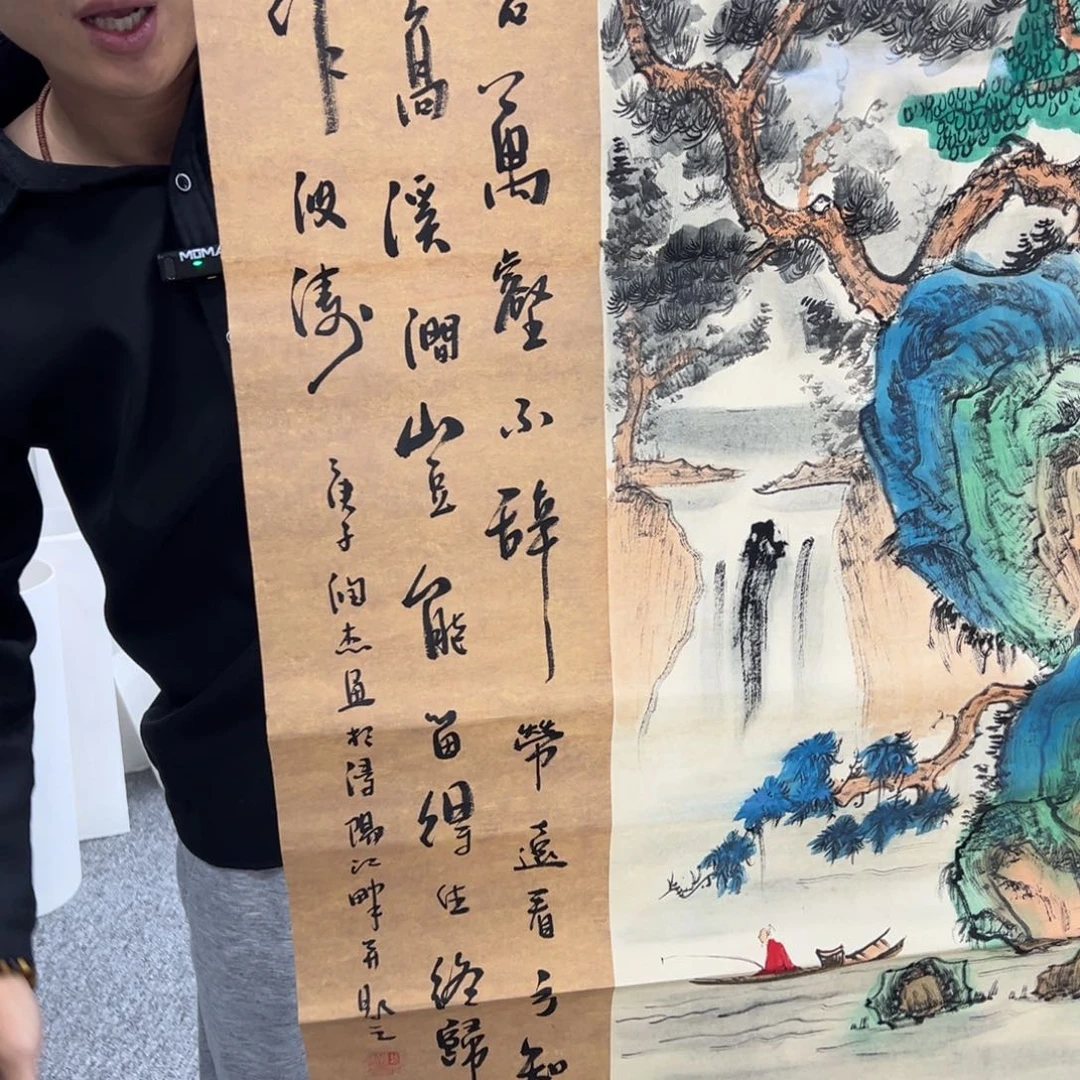 萬壑不辭勞遠看方知
高溪澗豈能留得住終歸
作波濤
庚子润杰画於潯陽江畔并題之
MOMA